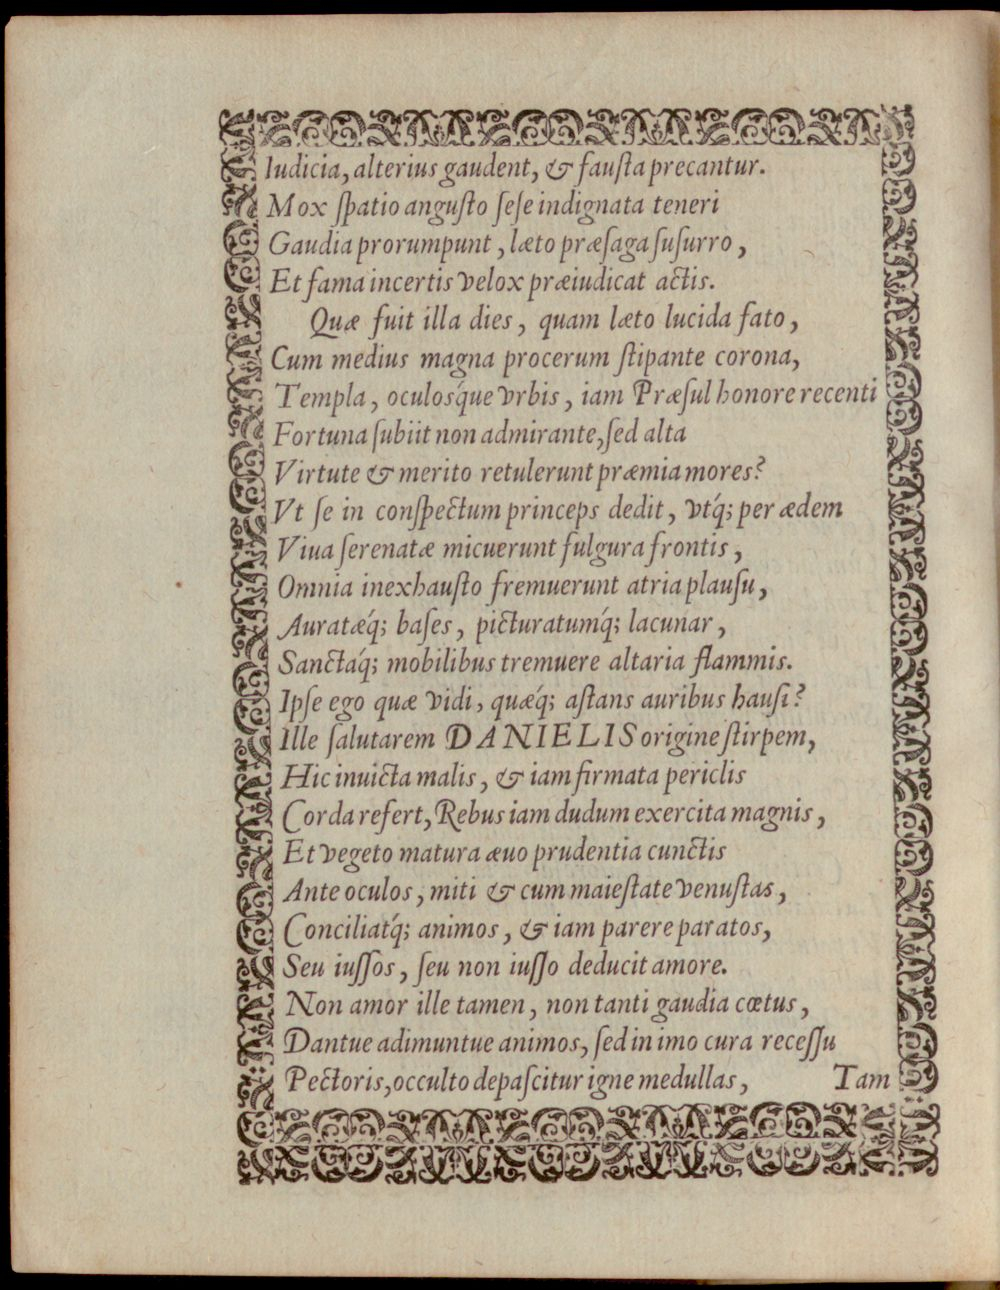 Iudicia, alterius gaudent, & fauſta precantur.
Mox ſpatio anguſto ſeſe indignata teneri
Gaudia prorumpunt, læto præſaga ſuſurro,
Et fama incertis velox præiudicat actis.
Quæ fuit illa dies, quam læto lucida fato,
Cum medius magna procerum ſtipante corona,
Templa, oculosq́ue vrbis, iam Præſul honore recenti
Fortuna ſubiit non admirante, ſed alta
Virtute & merito retulerunt præmia mores?
Vt ſe in conſpectum princeps dedit, vtq́; per ædem
Viua ſerenatæ micuerunt fulgura frontis,
Omnia inexhauſto fremuerunt atria plauſu,
Auratæq́; baſes, picturatumq́; lacunar,
Sanctaq́; mobilibus tremuere altaria flammis.
Ipſe ego quæ vidi, quæq́; aſtans auribus hauſi?
Ille ſalutarem DANIELIS origine ſtirpem,
Hic inuicta malis, & iam firmata periclis
Corda refert, Rebus iam dudum exercita magnis,
Et vegeto matura æuo prudentia cunctis
Ante oculos, miti & cum maieſtate venuſtas,
Conciliatq́; animos, & iam parere paratos,
Seu iuſſos, ſeu non iuſſo deducit amore.
Non amor ille tamen, non tanti gaudia cœtus,
Dantue adimuntue animos, ſed in imo cura receſſu
Pectoris, occulto depaſcitur igne medullas,
Tam